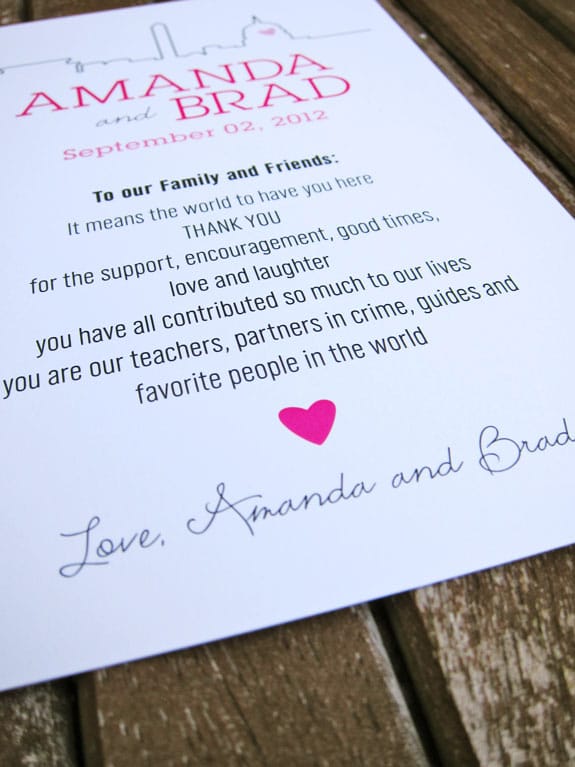 AMANDA
and BRAD
September 02, 2012
To our Family and Friends:
It means the world to have you here
THANK YOU
for the support, encouragement, good times,
love and laughter
you have all contributed so much to our lives
you are our teachers, partners in crime, guides and
favorite people in the world
Love, Amanda and Brad